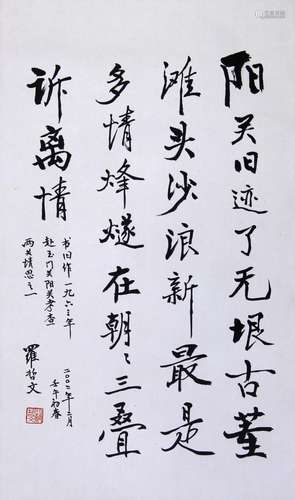 阳关旧迹了无垠古董
滩头沙浪新最是
多情烽燧在朝々三叠
诉离情
书旧作一九六三年
赴玉门关阳关考查
两关情思之一
二〇〇二年二月
壬午初春
羅哲文